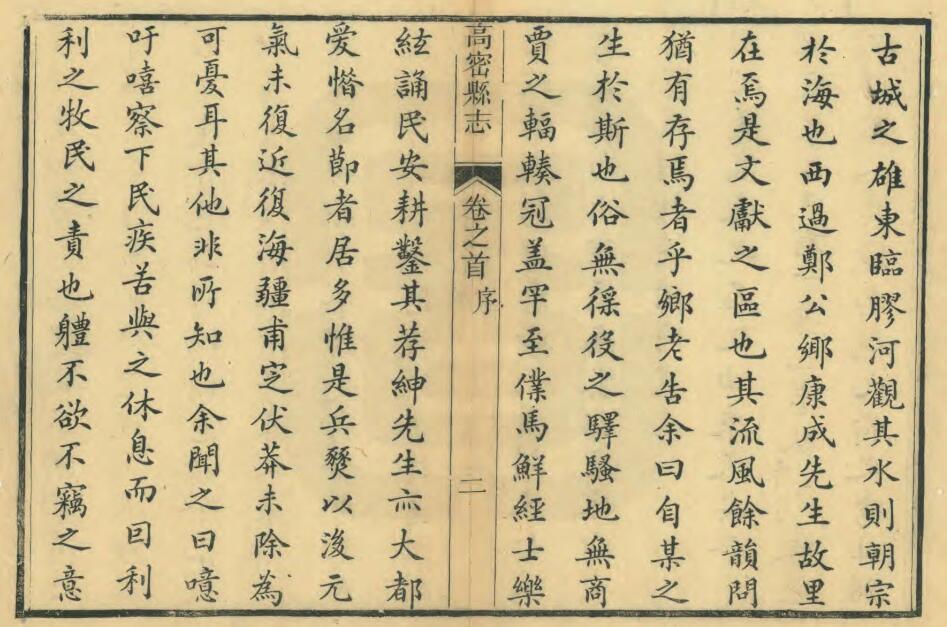 古城之雄東臨膠河觀其水則朝宗
於海也西過鄭公鄉康成先生故里
在焉是文獻之區也其流風餘韻問
猶有存焉者乎鄉老告余曰自某之
生於斯也俗無徭役之驛騷地無商
賈之輻輳冠盖罕至僕馬鮮經士樂
高密縣志
卷之首
序
二
絃誦民安耕鑿其荐紳先生亦大都
愛惜名節者居多惟是兵燹以後元
氣未復近復海疆甫定伏莽未除為
可憂耳其他非所知也余聞之曰噫
吁嘻察下民疾苦與之休息而因利
利之牧民之責也軆不欲不竊之意